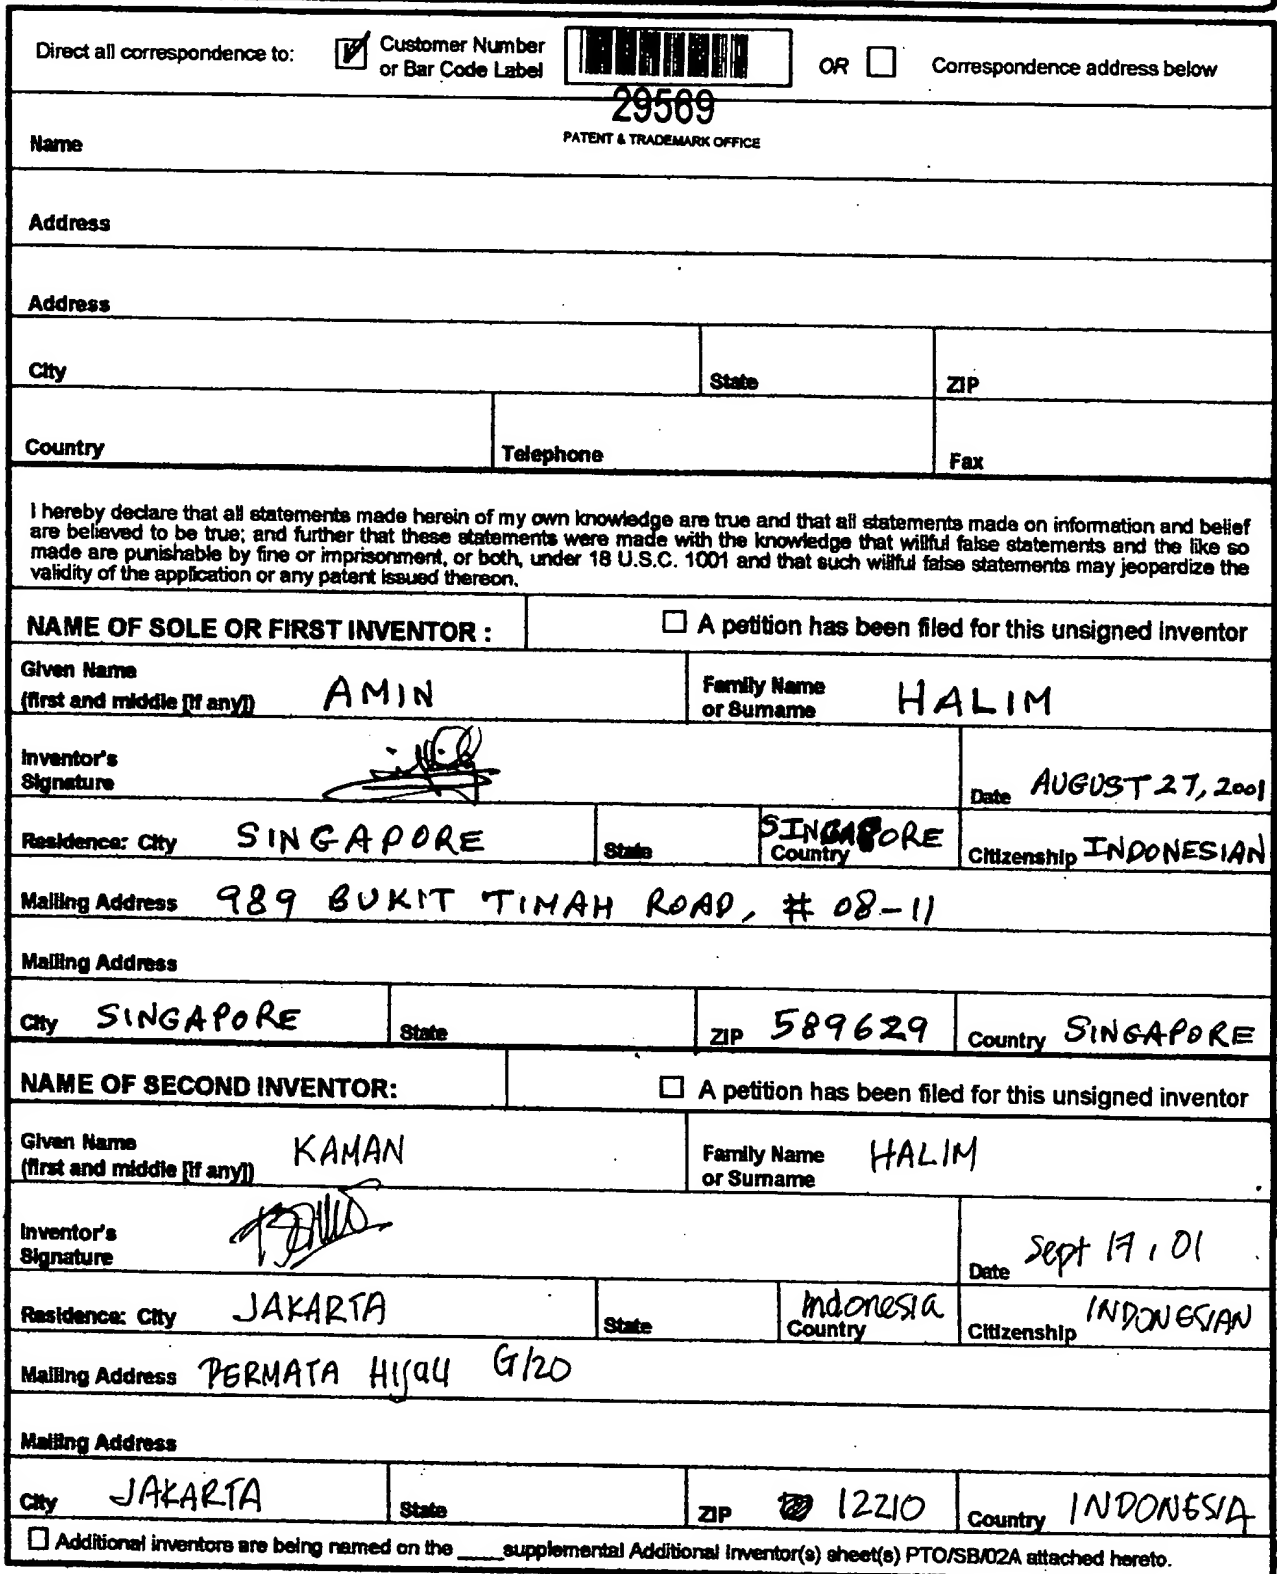 Direct all correspondence to: Customer Number or Bar Code Label OR Correspondence address below
29569
PATENT & TRADEMARK OFFICE
Name
Address
Address
City State ZIP
Country Telephone Fax
I hereby declare that all statements made herein of my own knowledge are true and that all statements made on information and belief
are believed to be true; and further that these statements were made with the knowledge that willful false statements and the like so
made are punishable by fine or imprisonment, or both, under 18 U.S.C. 1001 and that such willful false statements may jeopardize the
validity of the application or any patent issued thereon.
NAME OF SOLE OR FIRST INVENTOR : A petition has been filed for this unsigned inventor
Given Name
(first and middle [if any]) AMIN Family Name or Surname HALIM
Inventor's
Signature Date AUGUST 27, 2001
Residence: City SINGAPORE State Country SINGAPORE Citizenship INDONESIAN
Mailing Address 989 BUKIT TIMAH ROAD, # 08-11
Mailing Address
City SINGAPORE State ZIP 589629 Country SINGAPORE
NAME OF SECOND INVENTOR: A petition has been filed for this unsigned inventor
Given Name
(first and middle [if any]) KAMAN Family Name or Surname HALIM
Inventor's
Signature Date Sept 17, 01
Residence: City JAKARTA State Country Indonesia Citizenship INDONESIAN
Mailing Address PERMATA HIJAU G/20
Mailing Address
City JAKARTA State ZIP 12210 Country INDONESIA
Additional inventors are being named on the ____supplemental Additional Inventor(s) sheet(s) PTO/SB/02A attached hereto.